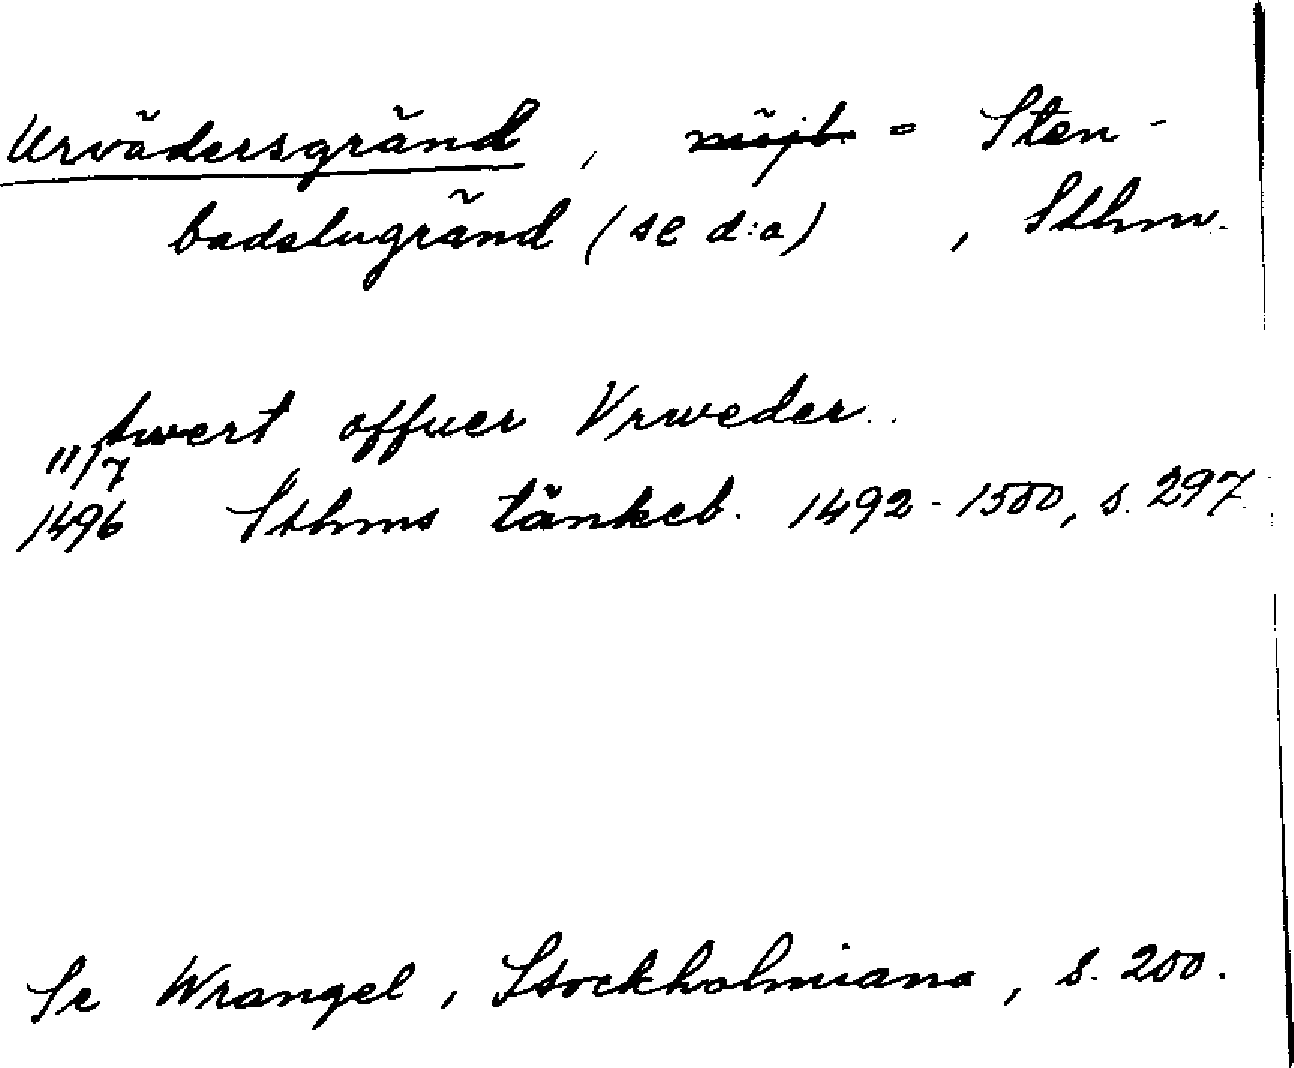 Urvädersgränd, möjl. = Sten-
badstugränd (se d:o), Sthm.
twert offuer Vrweder..
11/7
1496 Sthms tänkeb. 1492-1500, s. 297
Se Wrangel, Stockholmiana, s. 200.